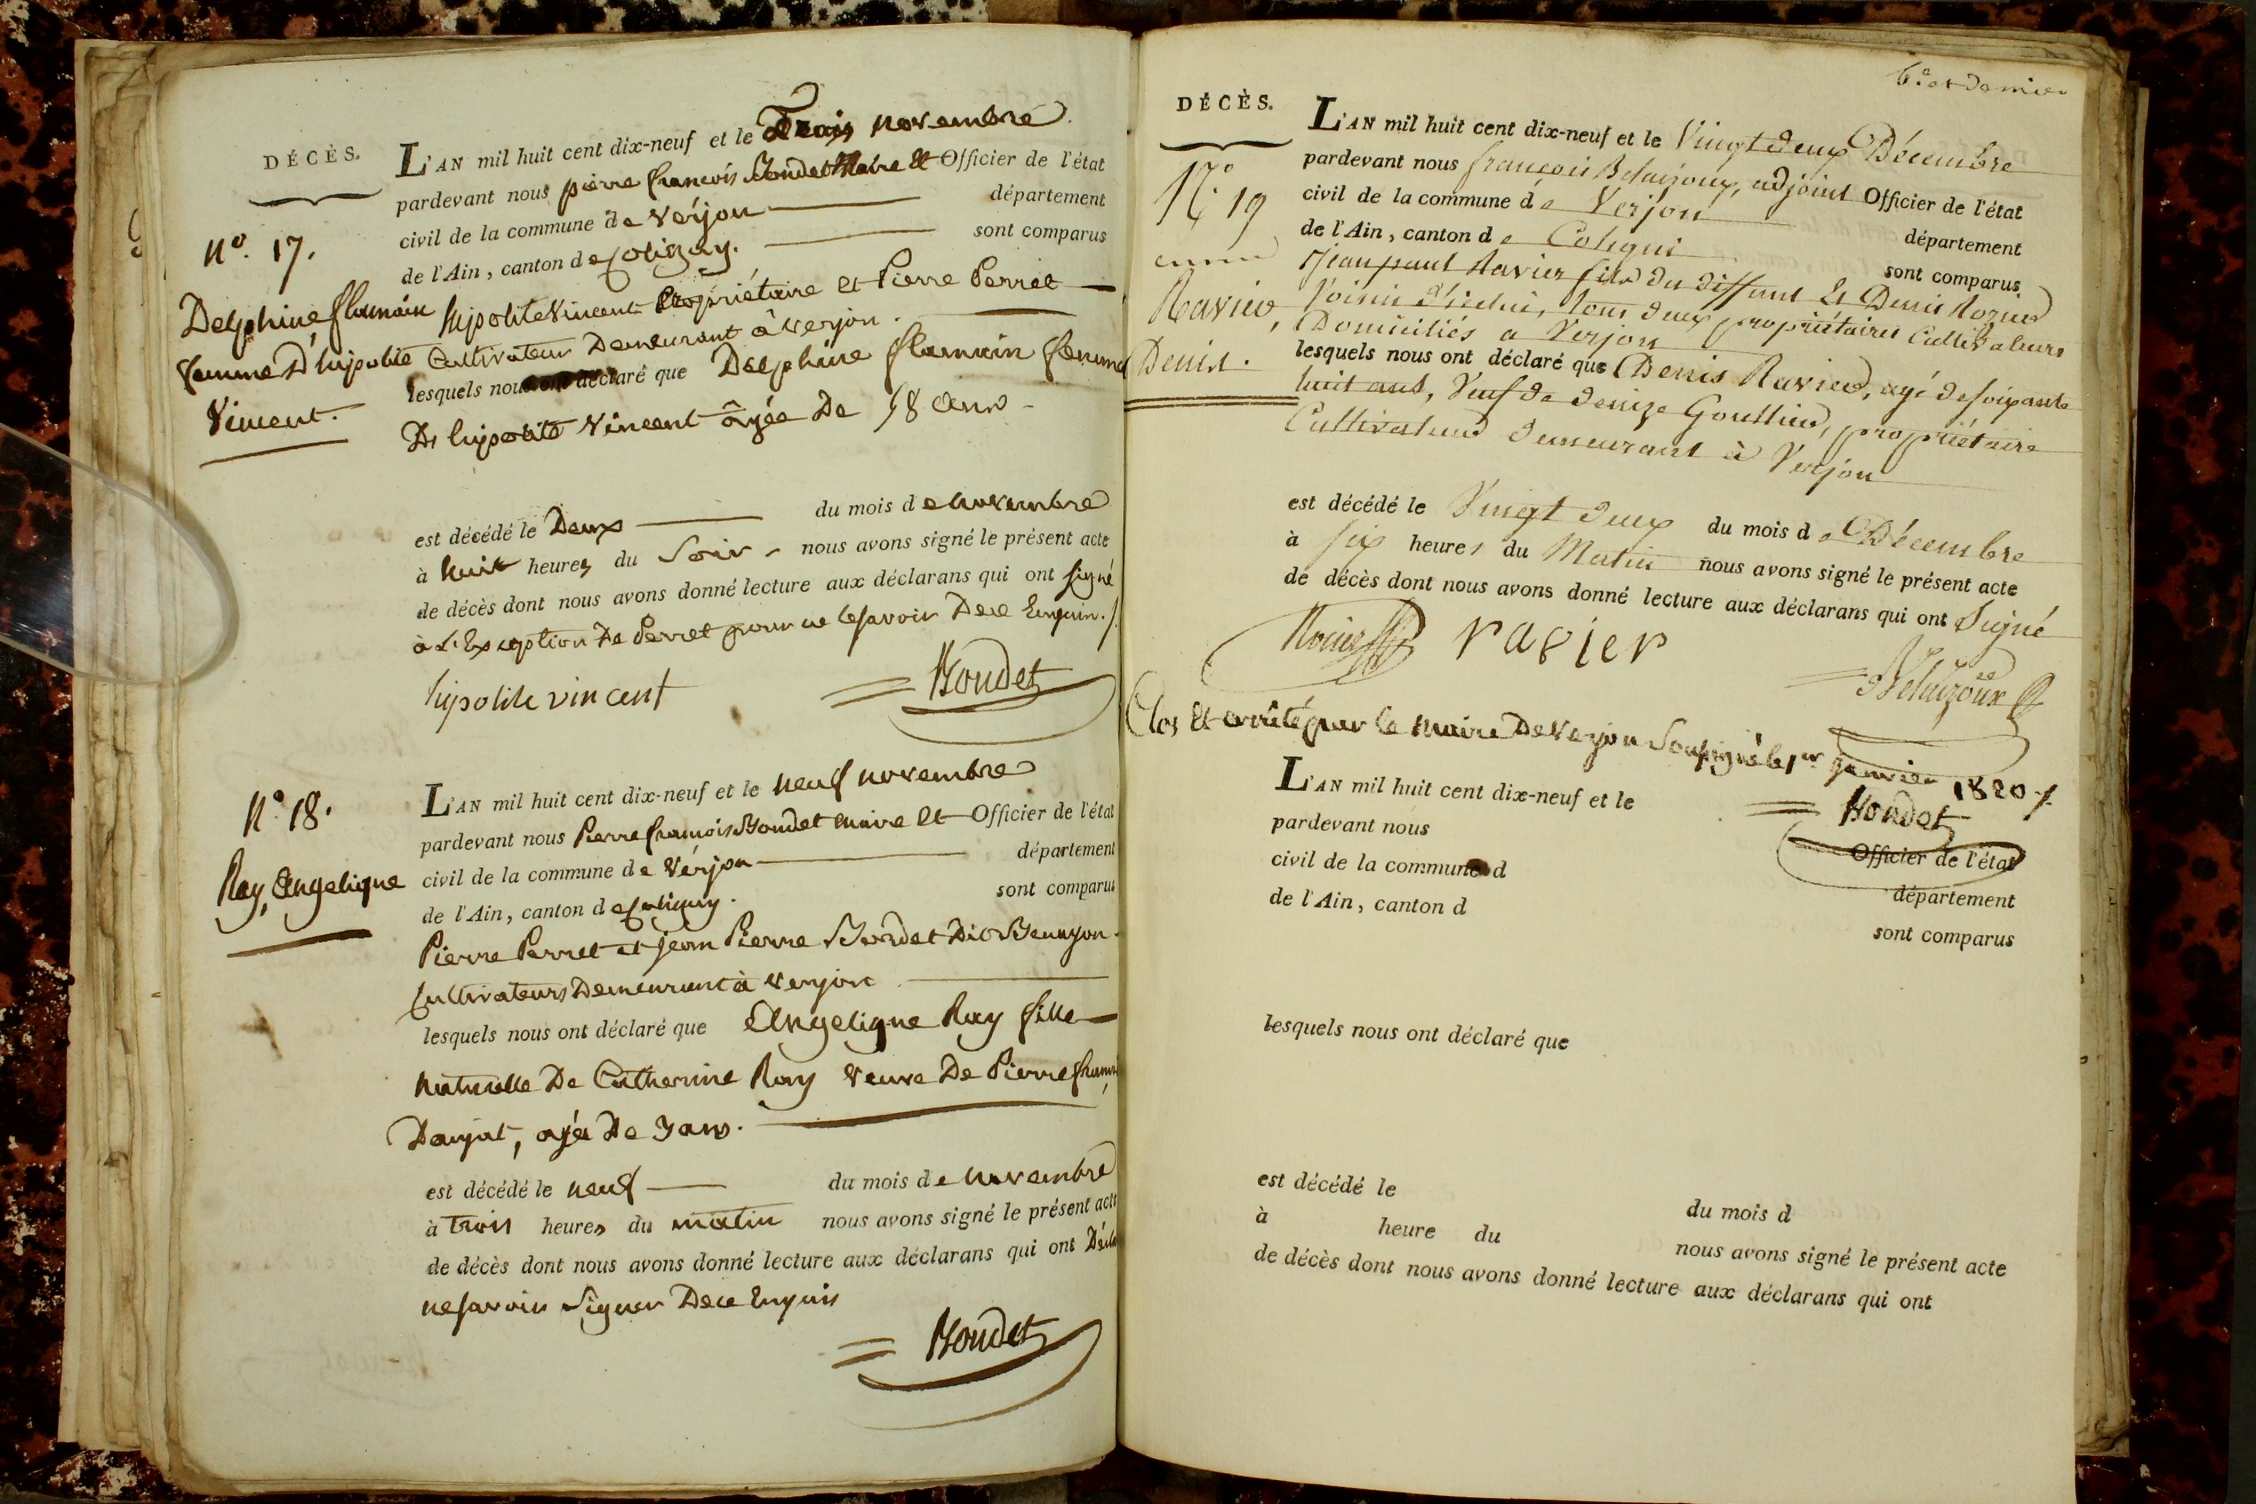 DÉCÈS.
N.º 17.
Delphine flamain
femme D'hipolite
Vincent.
L'AN mil huit cent dix-neuf et le Trois novembre
pardevant nous pierre françois Hondet Maire et Officier de l'état
civil de la commune de Verjon département
de l'Ain, canton de Coligny. sont comparus
hipolite Vincent Propriétaire et Pierre Perret
Cultivateur Demeurant à Verjon.
lesquels nous ont déclaré que Delphine flamain femme
De hipolite Vincent âgée De 58 ans
est décédé le Deux du mois de novembre
à huit heures du Soir nous avons signé le présent acte
de décès dont nous avons donné lecture aux déclarans qui ont signé
à l'Exception De Perret pour ne le savoir De ce Enquis ./.
hipolite vincent Hondet
N.º 18.
Ray, Angelique
L'AN mil huit cent dix-neuf et le neuf novembre
pardevant nous Pierre françois Hondet maire et Officier de l'état
civil de la commune de Vérjon département
de l'Ain, canton de Coligny. sont comparus
Pierre Perret et jean Pierre Dit
Cultivateurs Demeurant à Verjon
lesquels nous ont déclaré que Angelique Ray fille
naturelle De Catherine Ray veuve De Pierre
agée De ans.
est décédé le neuf du mois de novembre
à Trois heures du matin nous avons signé le présent acte
de décès dont nous avons donné lecture aux déclarans qui ont
ne savoir Signer De ce Enquis
Hondet
6.e et dernier
DÉCÈS.
N.º 19
Ravier,
Denis.
L'AN mil huit cent dix-neuf et le Vingt deux Décembre
pardevant nous françois adjoint Officier de l'état
civil de la commune de Verjon département
de l'Ain, canton de Coligni sont comparus
Jean paul Ravier fils du deffunt et Denis
Voisin d'icelui, tous deux propriétaires Cultivateurs
Domiciliés a Verjon
lesquels nous ont déclaré que Denis Ravier, agé de soixante
huit ans, Veuf de denize propriétaire
Cultivateur demeurant à Verjon
est décédé le Vingt deux du mois de Décembre
à six heures du Matin nous avons signé le présent acte
de décès dont nous avons donné lecture aux déclarans qui ont Signé
ravier
Clos et arrêté par le maire De Verjon Soussigné le 1er janvier 1820 ./.
Hondet
L'AN mil huit cent dix-neuf et le
pardevant nous Officier de l'état
civil de la commune d département
de l'Ain, canton d sont comparus
lesquels nous ont déclaré que
est décédé le du mois d
à heure du nous avons signé le présent acte
de décès dont nous avons donné lecture aux déclarans qui ont